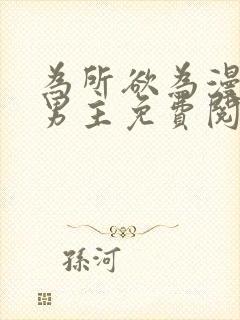 為所欲為漫
男主免費閱
孫河